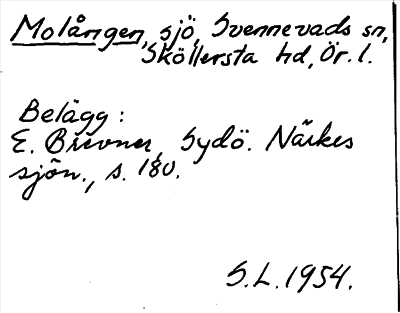 Molången, sjö, Svennevads sn,
Sköllersta hd, Ör. l.
Belägg:
E. Brevner, Sydö. Närkes
sjön., s. 180.
S.L. 1954.